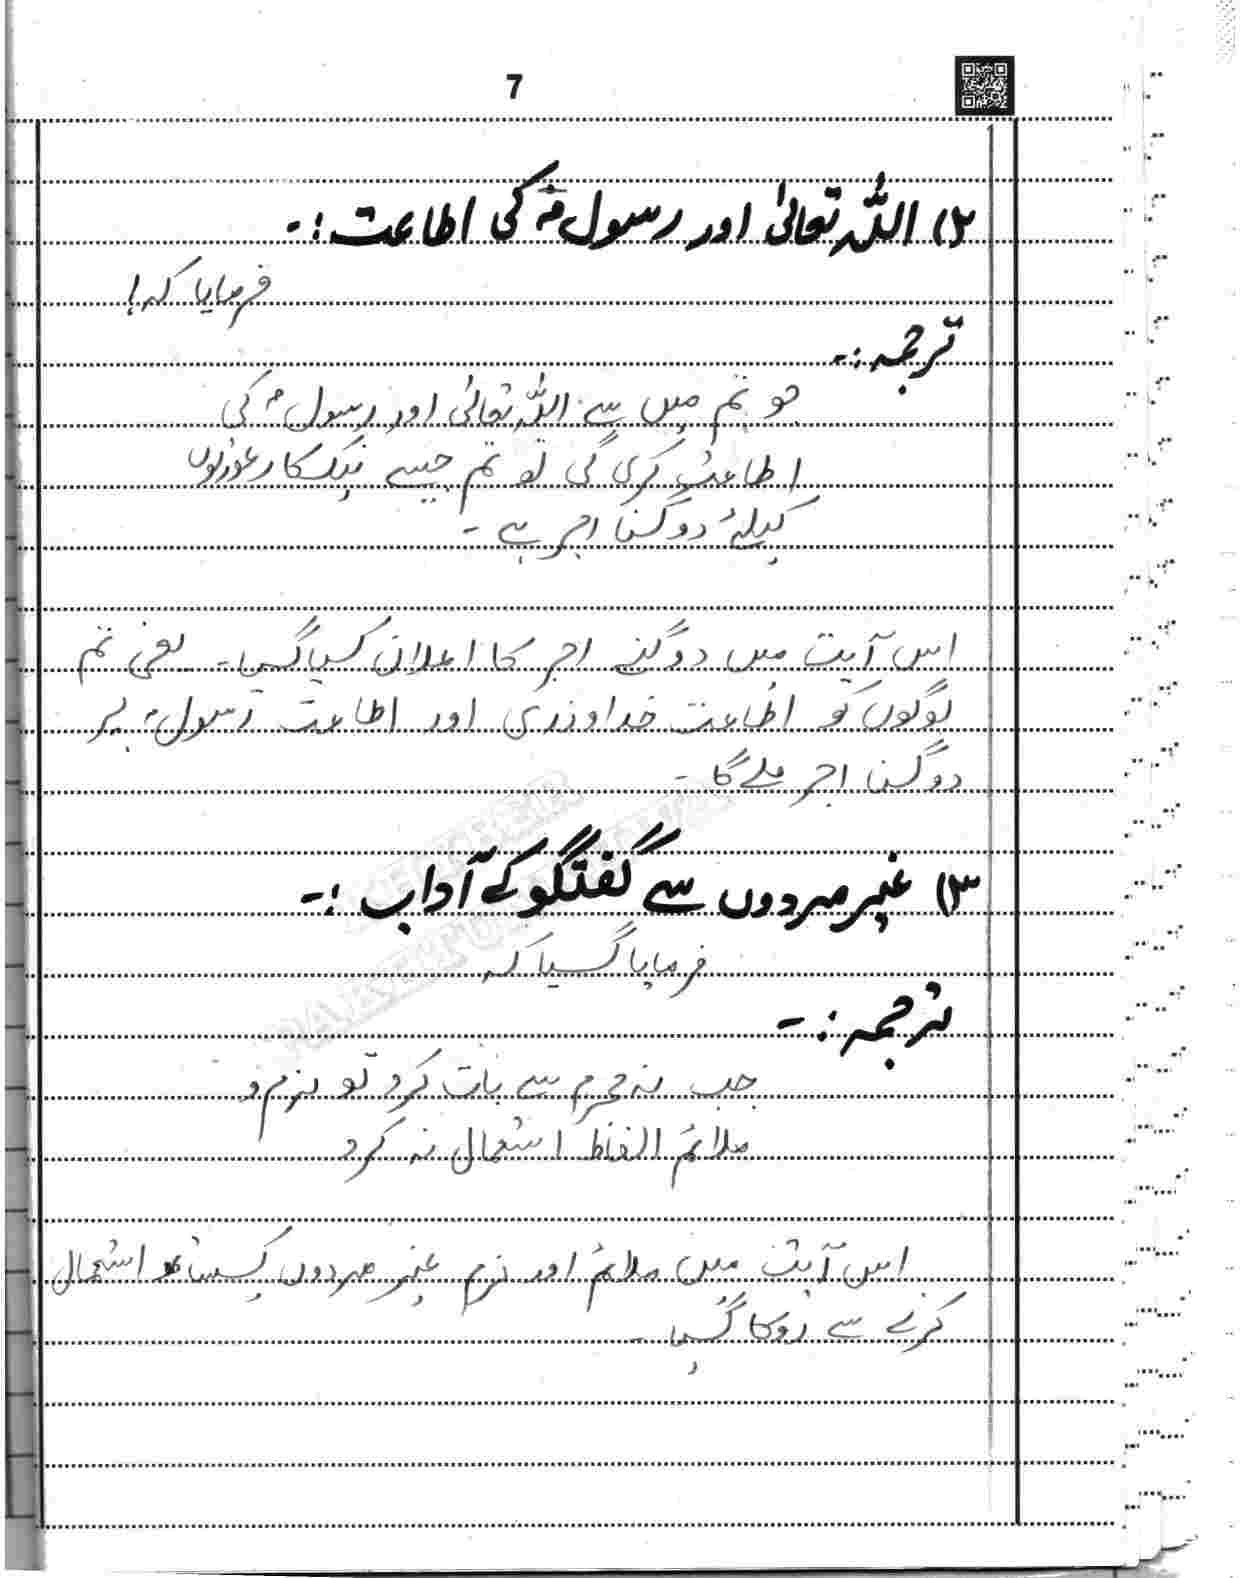 7
۲) اللہ تعالیٰ اور رسولؐ کی اطاعت :-
فرمایا کہ!
ترجمہ :-
جو تم میں سے اللہ تعالیٰ اور رسولؐ کی
اطاعت کرے گی تو تم جیسے نیک کار عورتوں
کیلئے دوگنا اجر ہے -
اس آیت میں دوگنے اجر کا اعلان کیا گیا - یعنی تم
لوگوں کو اطاعت خداوندی اور اطاعت رسولؐ پر
دوگنا اجر ملے گا -
۳) غیر مردوں سے گفتگو کے آداب :-
فرمایا گیا کہ
ترجمہ :-
جب نہ محرم سے بات کرو تو نرم و
ملائم الفاظ استعمال نہ کرو
اس آیت میں ملائم اور نرم غیر مردوں کیساتھ استعمال
کرنے سے روکا گیا -